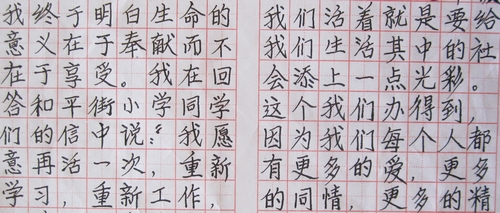 我终于明白生命的
意义在于奉献而不
在于享受。我在回
答和平街小学同学
们的信中说:“我愿
意再活一次,重新
学习,重新工作,
我们活着就是要给
我们生活其中的社
会添上一点光彩。
这个我们办得到,
因为我们每个人都
有更多的爱,更多
的同情,更多的精